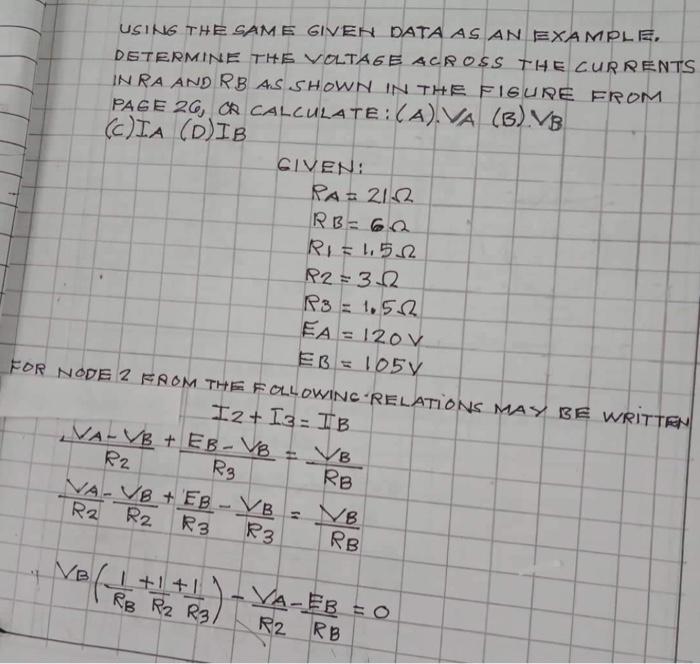 USING THE SAME GIVEN DATA AS AN EXAMPLE.
DETERMINE THE VOLTAGE ACROSS THE CURRENTS
IN RA AND RB AS SHOWN IN THE FIGURE FROM
PAGE 26, OR CALCULATE: (A).VA (B).VB
(C)IA (D)IB
GIVEN:
RA = 21Ω
RB = 6Ω
R1 = 1.5Ω
R2 = 3Ω
R3 = 1.5Ω
EA = 120V
EB = 105V
FOR NODE 2 FROM THE FOLLOWING RELATIONS MAY BE WRITTEN
I2 + I3 = IB
VA-VB/R2 + EB-VB/R3 = VB/RB
VA/R2 - VB/R2 + EB/R3 - VB/R3 = VB/RB
VB(1/RB + 1/R2 + 1/R3) - VA/R2 - EB/RB = 0